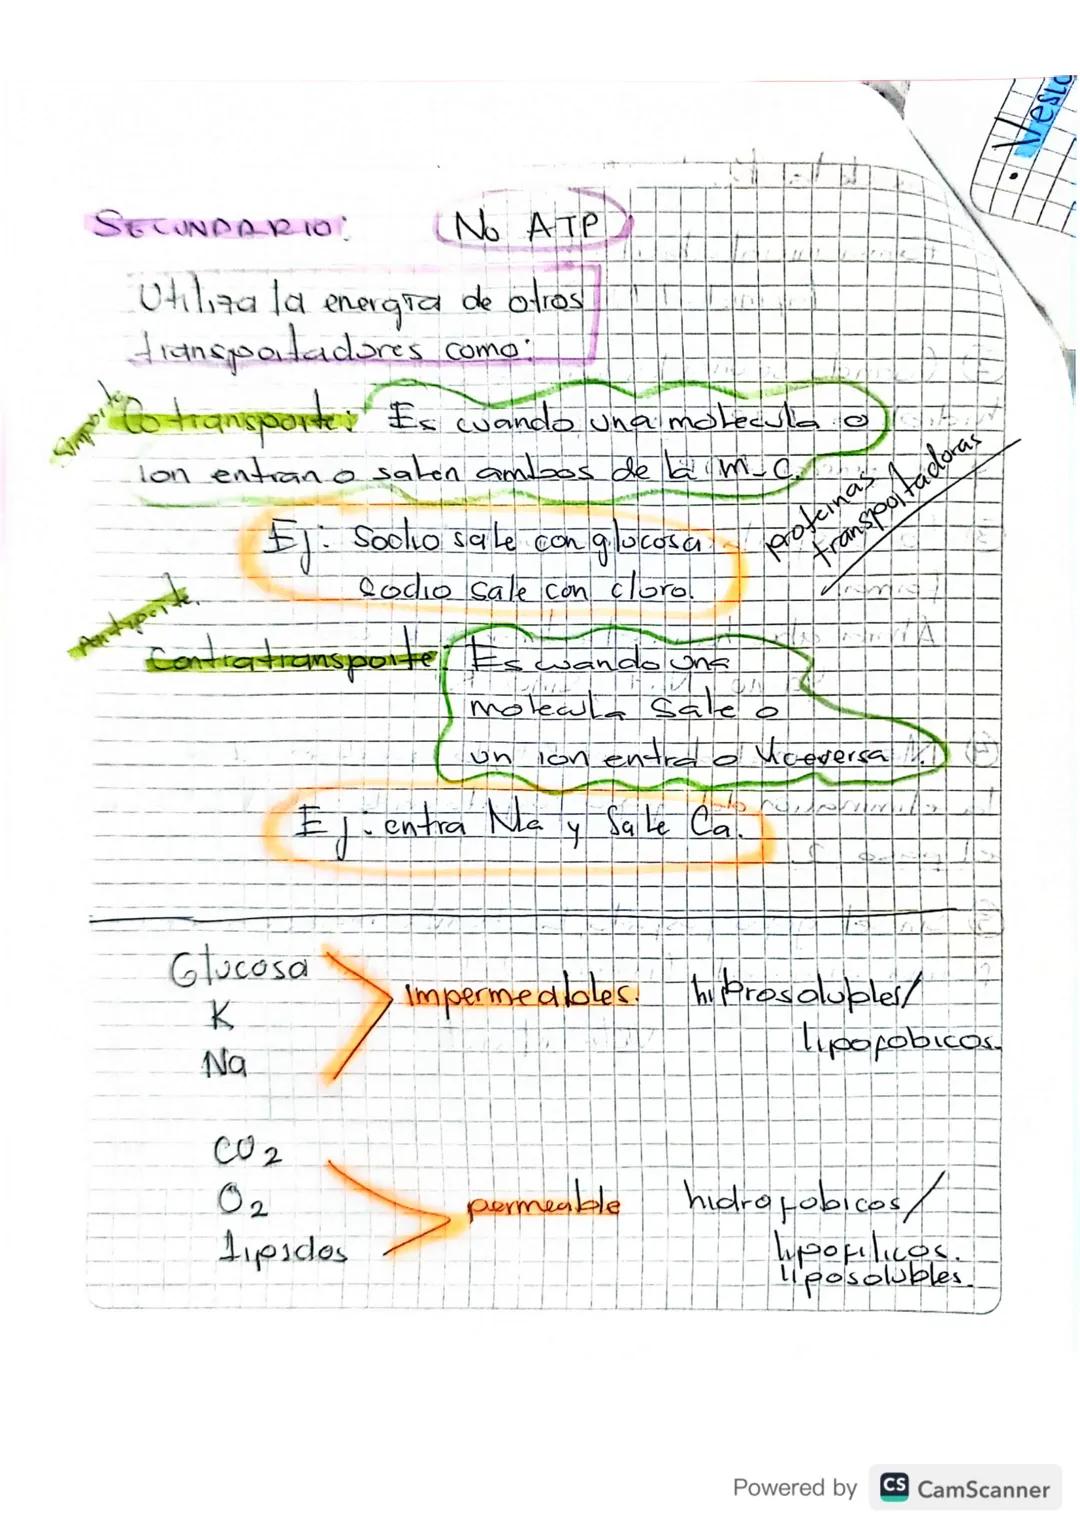 • Vesic
SECUNDARIO: No ATP
Utiliza la energia de otros
transportadores como:
Simporte
Cotransporte: Es cuando una molecula o
ion entran o salen ambos de la m-c.
proteinas
transportadoras
Ej: Sodio sale con glucosa
sodio sale con cloro.
Antiporte.
Contratransporte Es cuando una
molecula sale o
un ion entra o viceversa
Ej: entra Na y Sale Ca.
Glucosa
K
Na
impermeables. hidrosolubles/
lipofobicos.
CO2
O2
lipidos
permeable hidrofobicos/
lipofilicos.
liposolubles.
Powered by CS CamScanner